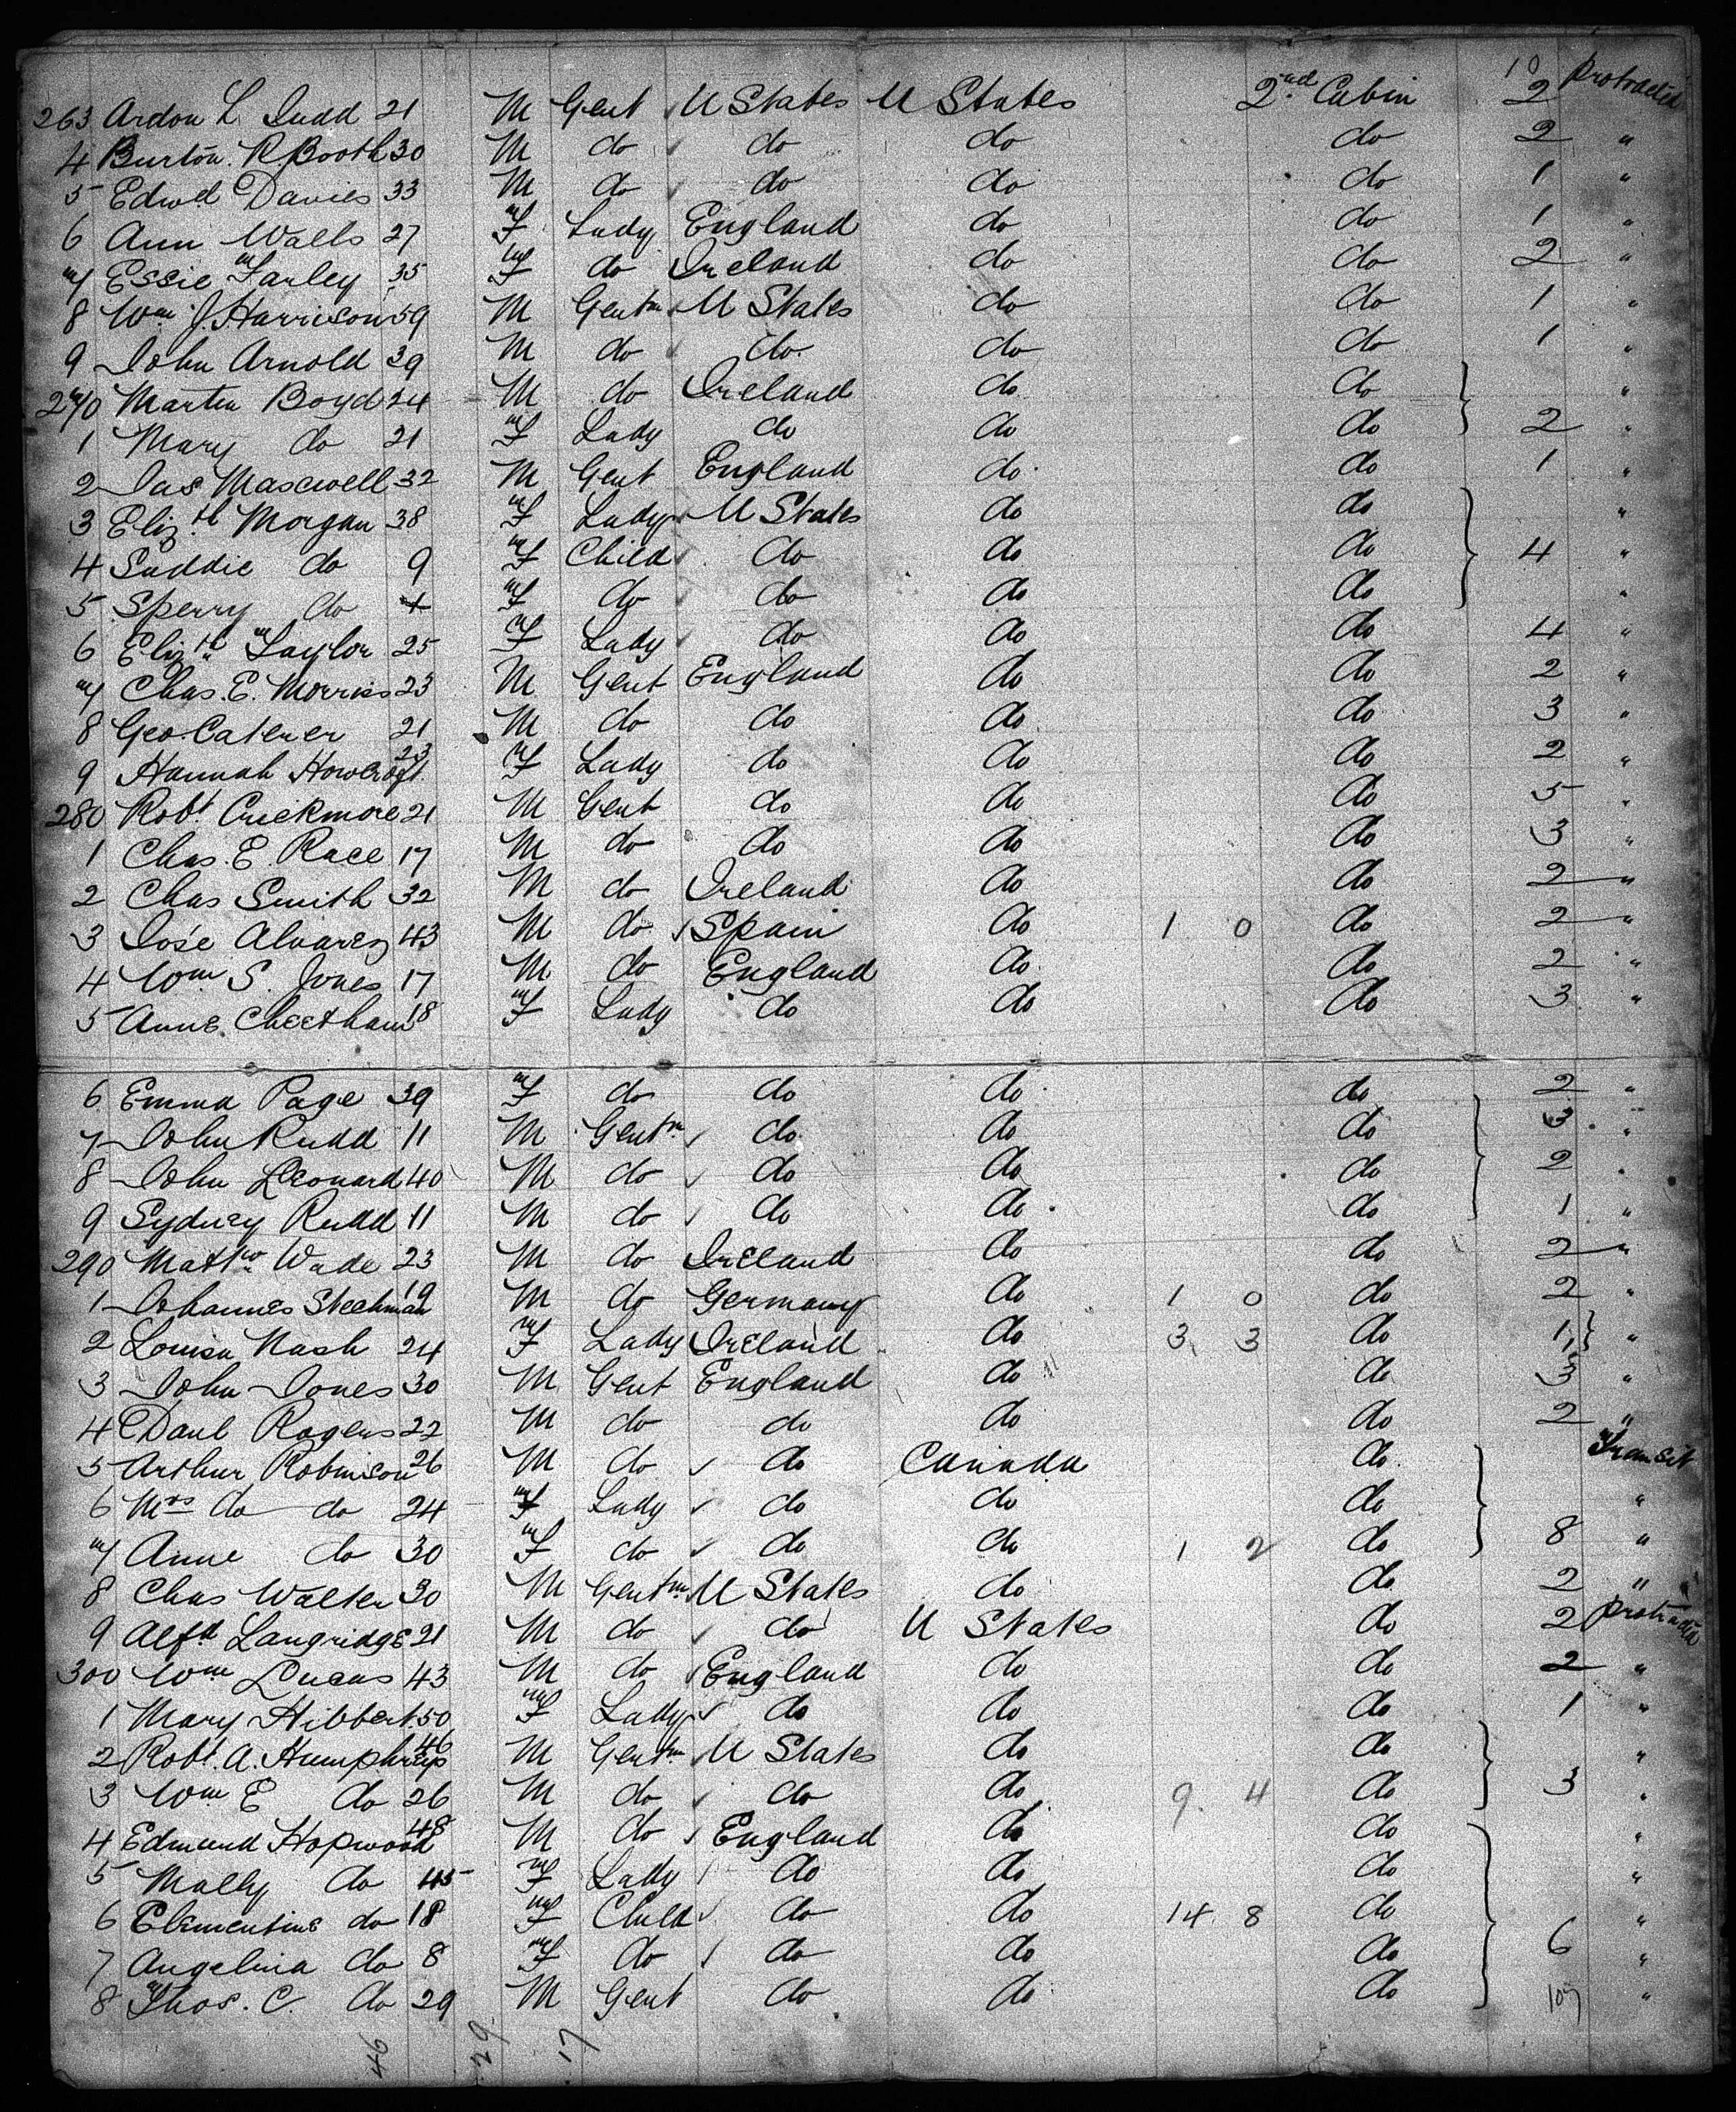 10 Protracted
263 Ardon L. Judd 21 M Gent U States U States 2nd Cabin 2
4 Burton R. Booth 30 M do do do do 2 "
5 Edwd Davies 33 M do do do do 1 "
6 Ann Walls 27 F Lady England do do 1 "
7 Essie Farley 35 F do Ireland do do 2 "
8 Wm J. Harrison 59 M Gentm U States do do 1 "
9 John Arnold 39 M do do do do 1 "
270 Martin Boyd 24 M do Ireland do do "
1 Mary do 21 F Lady do do do 2 "
2 Jas Maxwell 32 M Gent England do do 1 "
3 Elizth Morgan 38 F Lady U States do do "
4 Saddie do 9 F Child do do do 4 "
5 Sperry do F do do do do "
6 Elizth Taylor 25 F Lady do do do 4 "
7 Chas. E. Morriss 23 M Gent England do do 2 "
8 Geo. Caterer 21 M do do do do 3 "
9 Hannah Howcroft 23 F Lady do do do 2 "
280 Robt Cuckmore 21 M Gent do do do 5 "
1 Chas. E. Race 17 M do do do do 3 "
2 Chas Smith 32 M do Ireland do do 2 "
3 José Alvarez 43 M do Spain do 1 0 do 2 "
4 Wm S. Jones 17 M do England do do 2 "
5 Anne Cheetham 18 F Lady do do do 3 "
6 Emma Page 39 F do do do do 2 "
7 John Rudd 11 M Gentm do do do 3 "
8 John Leonard 40 M do do do do 2 "
9 Sydney Rudd 11 M do do do do 1 "
290 Mattw Wade 23 M do Ireland do do 2 "
1 Johannes Steehman 19 M do Germany do 1 0 do 2 "
2 Louisa Nash 24 F Lady Ireland do 3 3 do 1 "
3 John Jones 30 M Gent England do do 3 "
4 Danl Rogers 22 M do do do do 2 "
5 Arthur Robinson 26 M do do Canada do Transit
6 Mrs do do 24 F Lady do do do "
7 Anne do 30 F do do do 1 2 do 8 "
8 Chas Walter 30 M Gentm U States do do 2 "
9 Alfd Langridge 21 M do do U States do 2 Protracted
300 Wm Lucas 43 M do England do do 2 "
1 Mary Hibbert 50 F Lady do do do 1 "
2 Robt. A. Humphreys 46 M Gentm U States do do "
3 Wm E do 26 M do do do 9 4 do 3 "
4 Edmund Hopwood 48 M do England do do "
5 Mally do 45 F Lady do do do "
6 Clementine do 18 F Child do do 14 8 do "
7 Angelina do 8 F do do do do 6 "
8 Thos. C. do 29 M Gent do do do 107 "
46 29 17